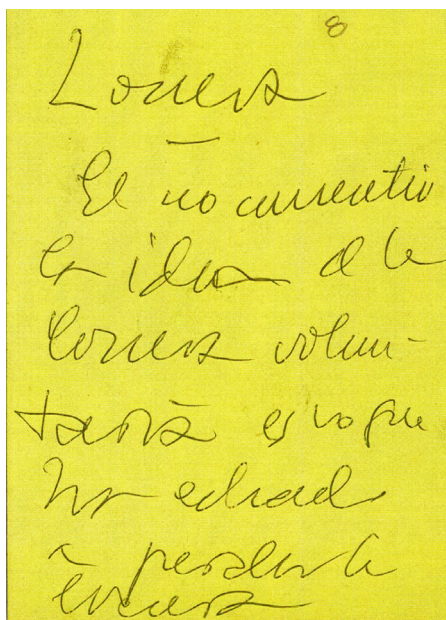 8
Locura
El no
la idea de la
locura volun-
taria es lo que
ha echado
a perder la
locura